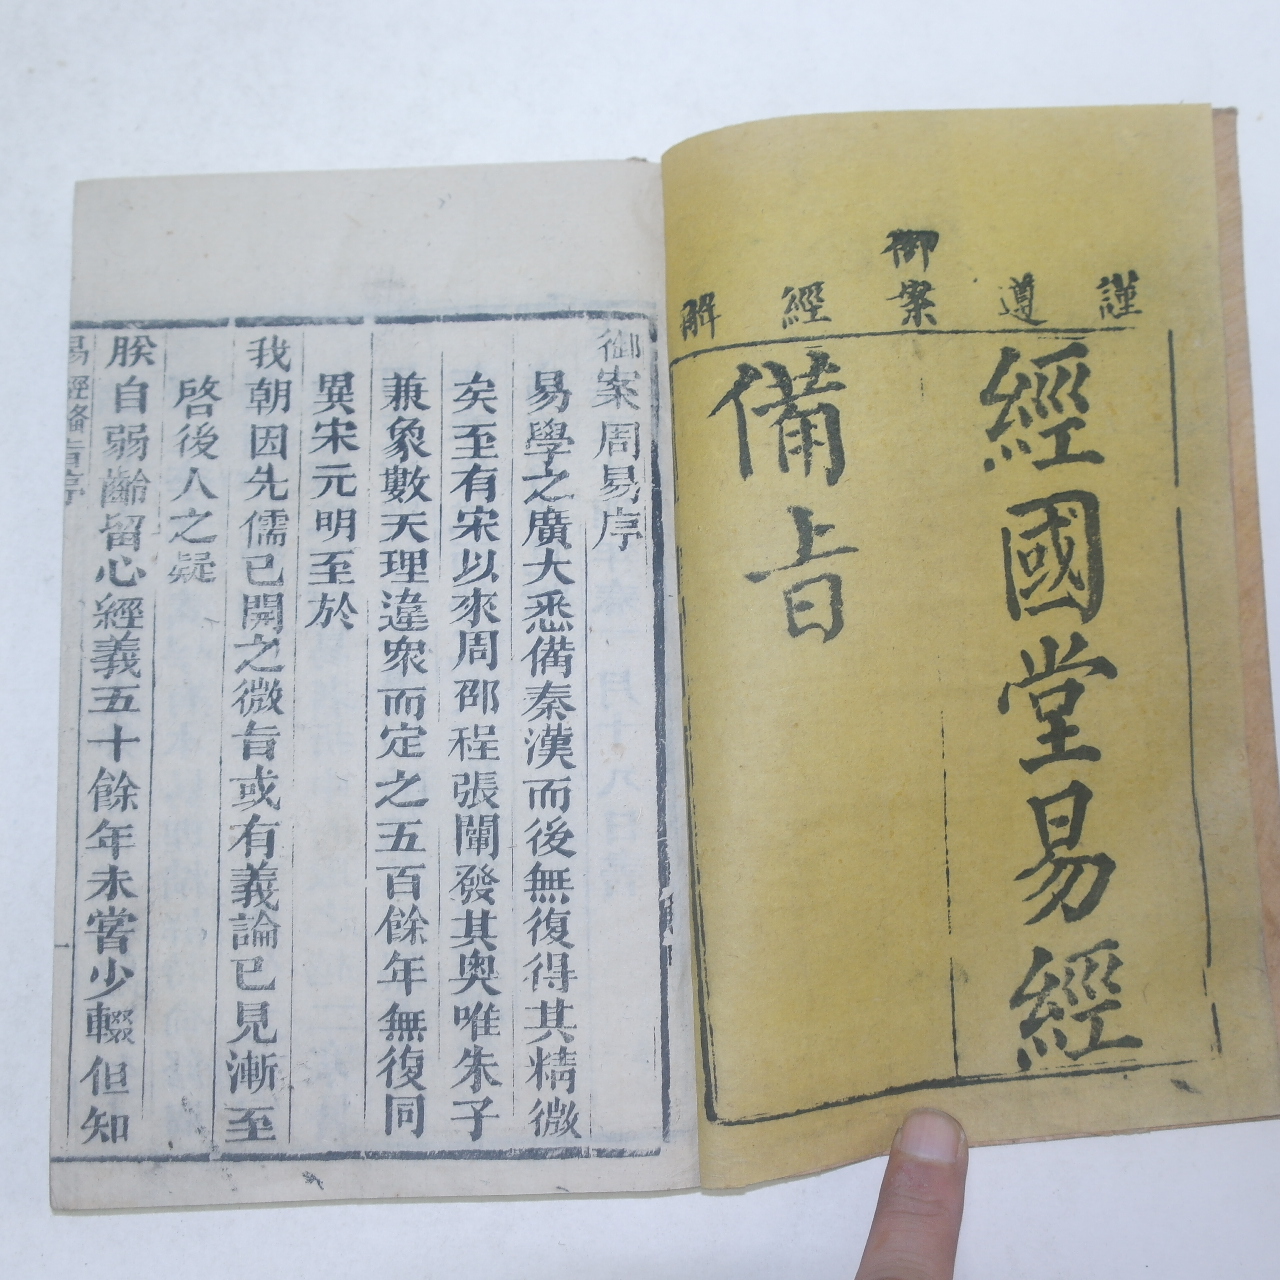 謹遵御案經解
經國堂易經
備旨
御案周易序
易學之廣大悉備秦漢而後無復得其精微
矣至有宋以來周邵程張闡發其奧唯朱子
兼象數天理違衆而定之五百餘年無復同
異宋元明至於
我朝因先儒已開之微旨或有議論已見漸至
啓後人之疑
朕自弱齡留心經義五十餘年未嘗少輟但知
易經備旨序